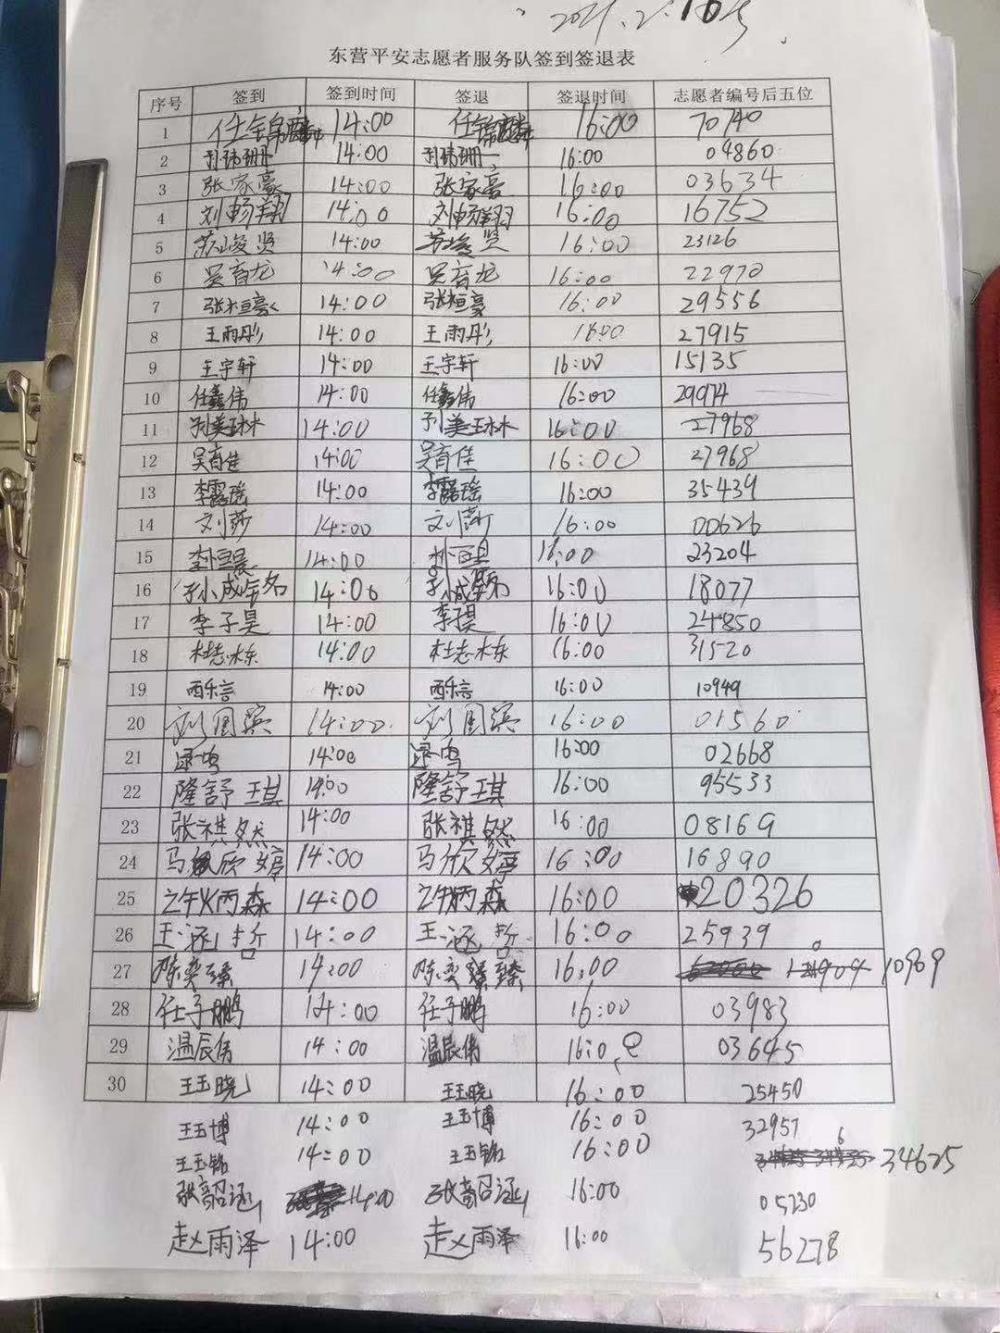 2021.2.16
东营平安志愿者服务队签到签退表
序号 签到 签到时间 签退 签退时间 志愿者编号后五位
1 任金锦麟 14:00 任锦麟 16:00 70140
2 刘琦珊 14:00 刘琦珊 16:00 04860
3 张家豪 14:00 张家豪 16:00 03634
4 刘畅翔 14:00 刘畅翔 16:00 16752
5 苏峻贤 14:00 苏峻贤 16:00 23126
6 吴育龙 14:00 吴育龙 16:00 22970
7 张桓豪 14:00 张桓豪 16:00 29556
8 王雨彤 14:00 王雨彤 16:00 27915
9 王宇轩 14:00 王宇轩 16:00 15135
10 任鑫伟 14:00 任鑫伟 16:00 29974
11 孙美琳 14:00 孙美琳 16:00 27968
12 吴育佳 14:00 吴育佳 16:00 27968
13 李露瑶 14:00 李露瑶 16:00 35439
14 刘莎 14:00 刘莎 16:00 00626
15 14:00 16:00 23204
16 14:00 16:00 18077
17 李子昊 14:00 李子昊 16:00 24850
18 杜志栋 14:00 杜志栋 16:00 31520
19 西乐言 14:00 西乐言 16:00 10949
20 刘国滨 14:00 刘国滨 16:00 01560
21 逯鸣 14:00 逯鸣 16:00 02668
22 隆舒琪 14:00 隆舒琪 16:00 95533
23 张祺然 14:00 张祺然 16:00 08169
24 马欣婷 14:00 马欣婷 16:00 16890
25 14:00 16:00 20326
26 王涵哲 14:00 王涵哲 16:00 25939
27 陈奕臻 14:00 陈奕臻 16:00 10989
28 任子鹏 14:00 任子鹏 16:00 03983
29 温辰伟 14:00 温辰伟 16:00 03645
30 王玉晓 14:00 王玉晓 16:00 25450
王玉博 14:00 王玉博 16:00 32957
王玉铭 14:00 王玉铭 16:00 34625
张韶涵 14:00 张韶涵 16:00 05230
赵雨泽 14:00 赵雨泽 16:00 56278